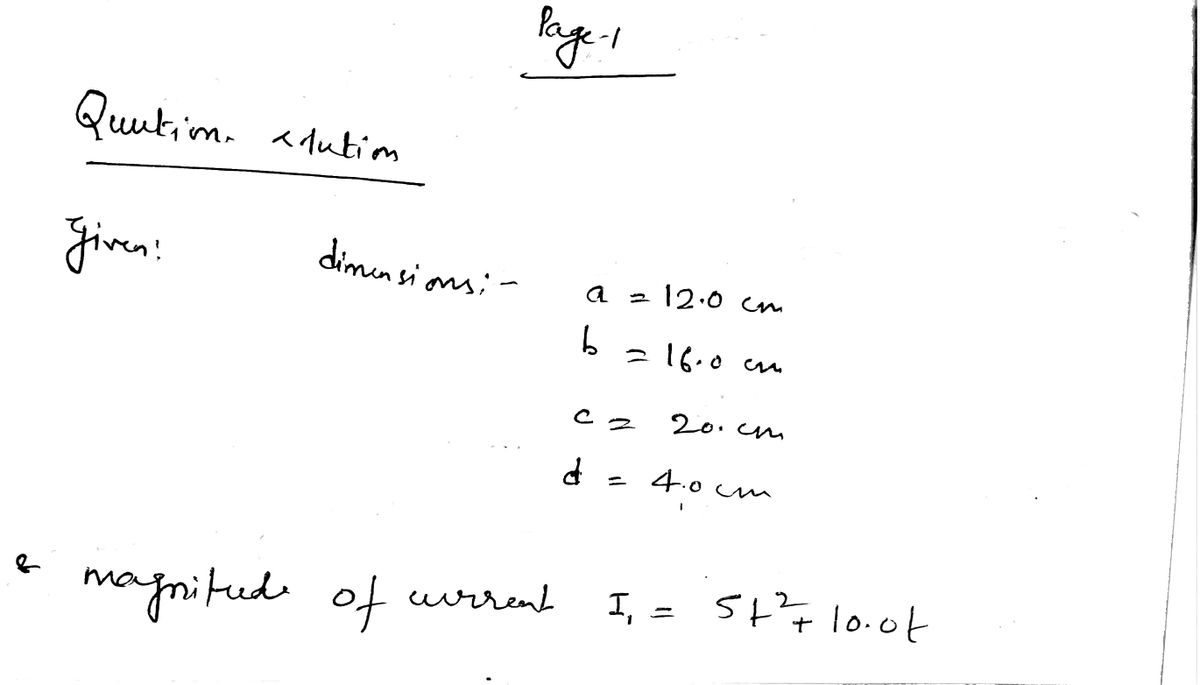 Page-1
Question solution
Given: dimensions:-
a = 12.0 cm
b = 16.0 cm
c = 20. cm
d = 4.0 cm
& magnitude of current I₁ = 5t² + 10.0t